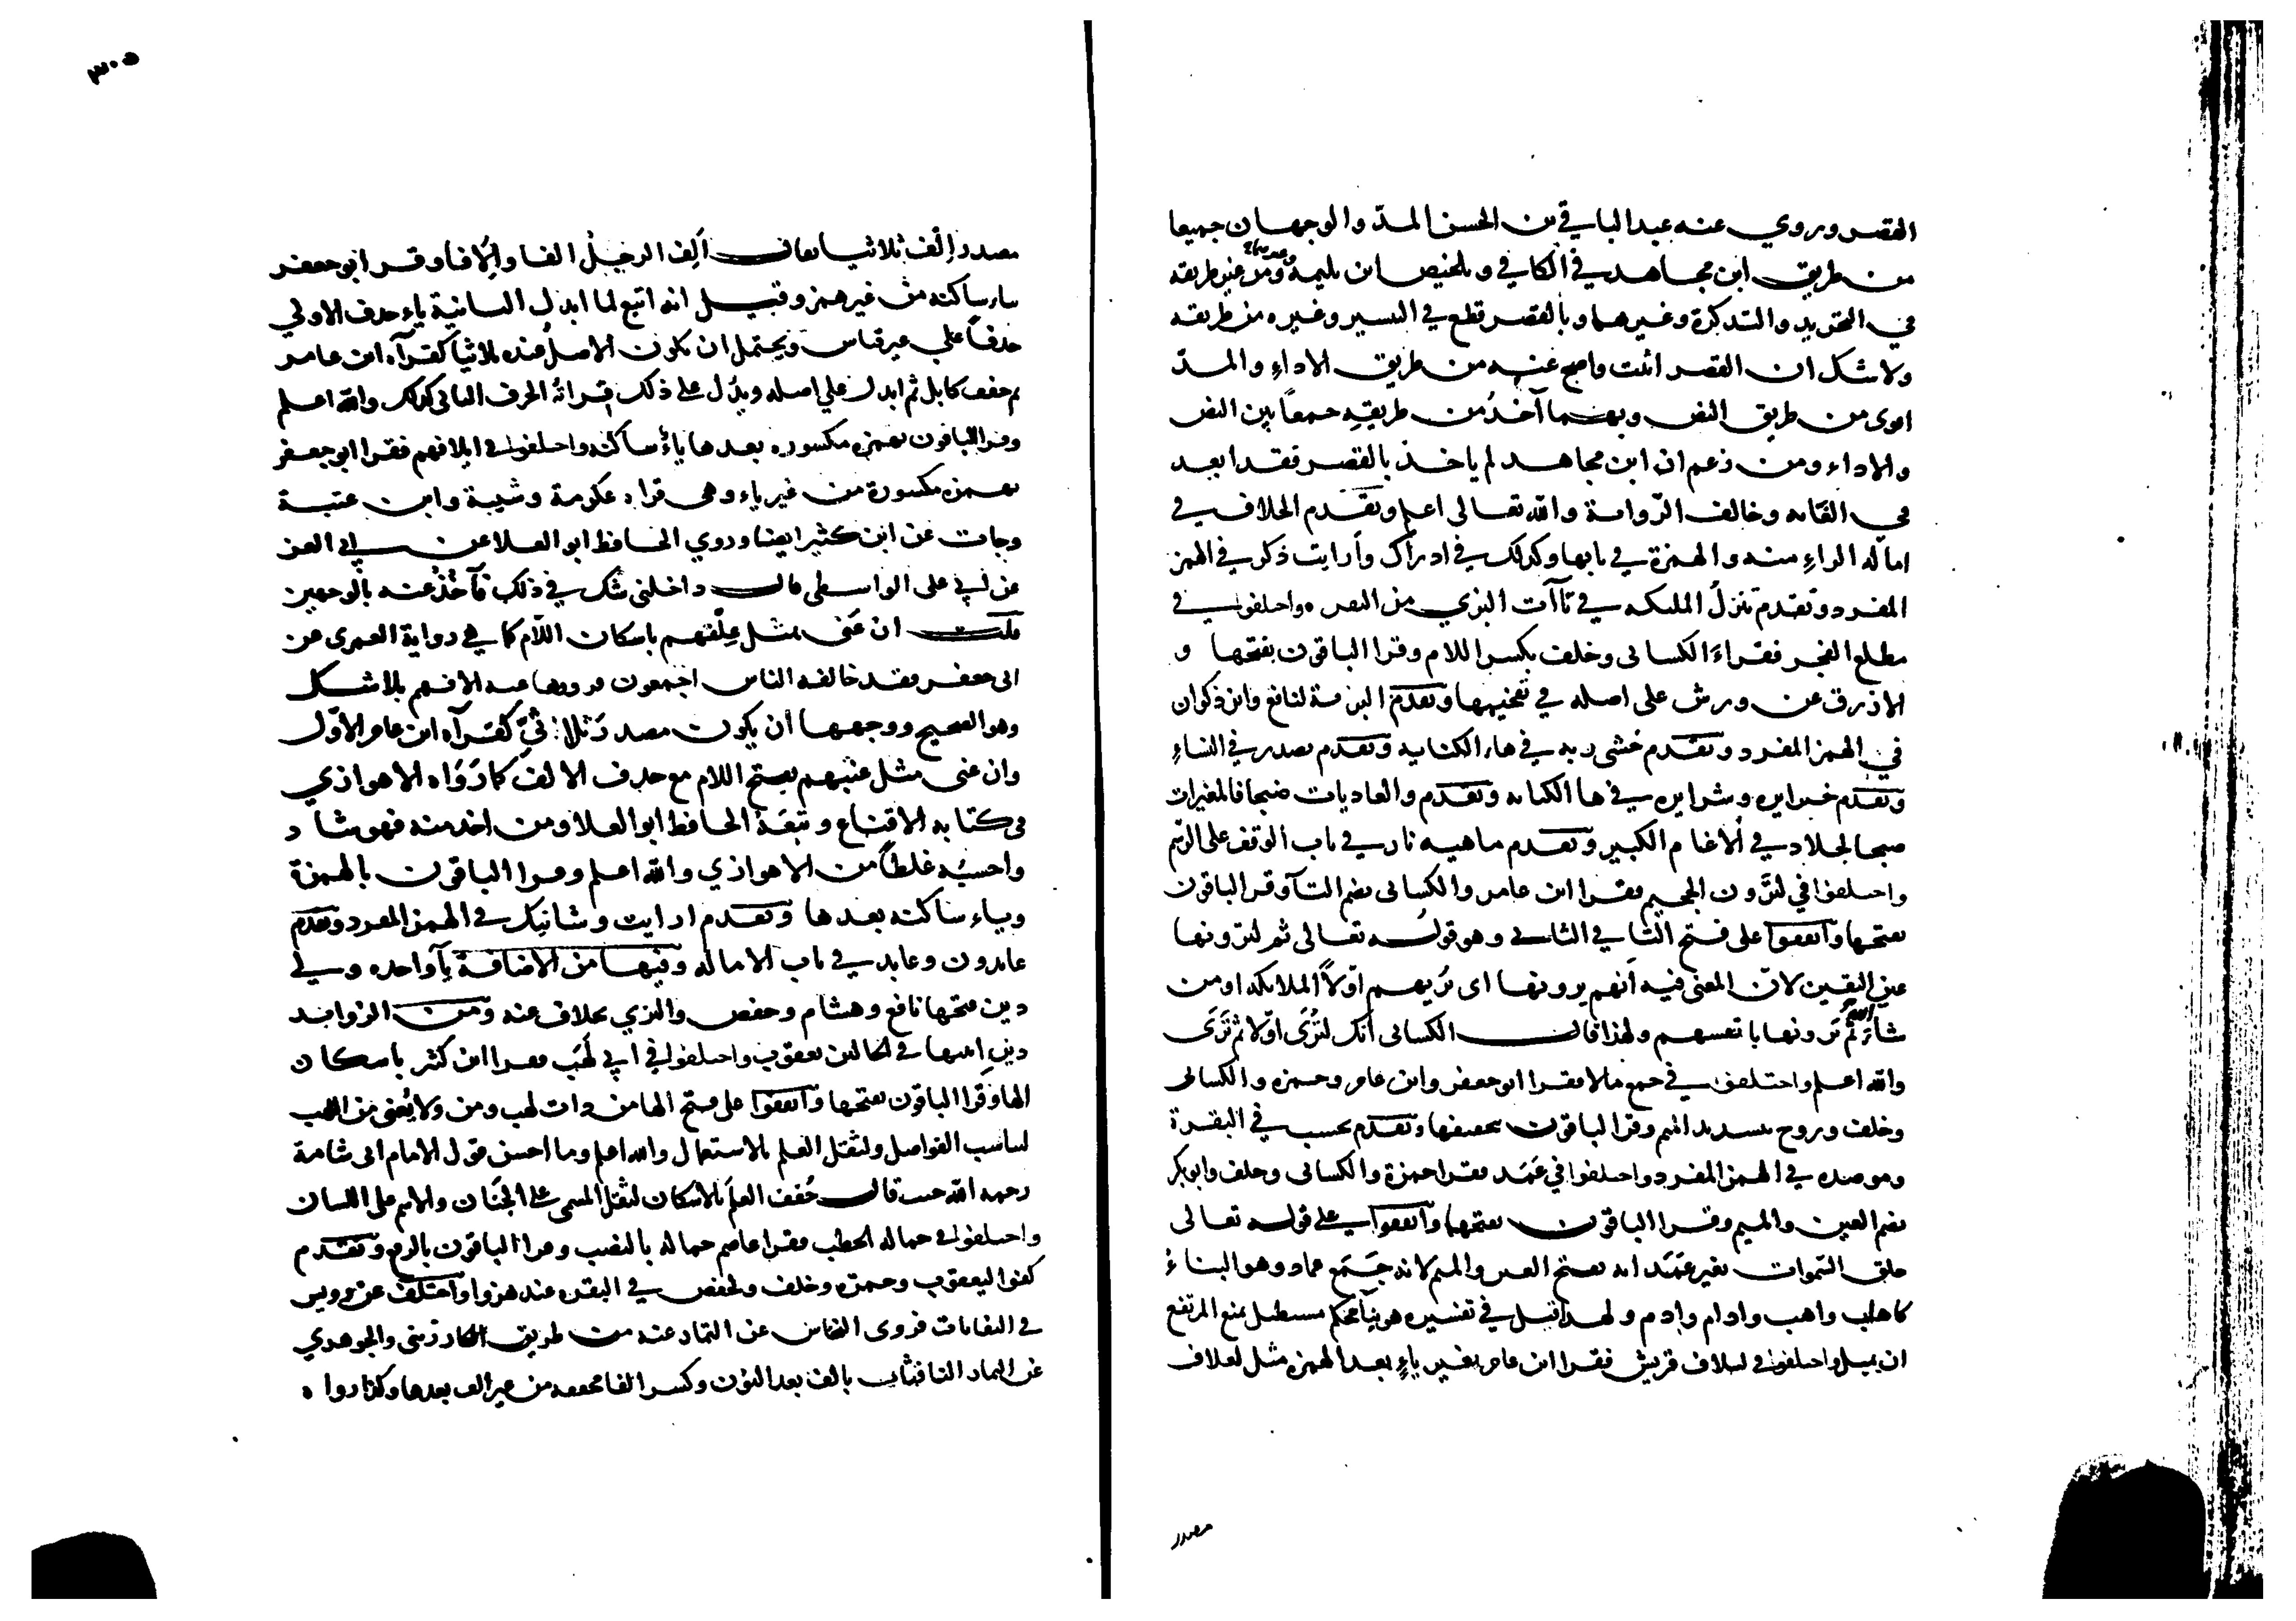 القصر وروي عنه عبد الباقي بن الحسن المدّ والوجهان جميعا
من طريق ابن مجاهد في الكافي وتلخيص ابن بليمه ومن غير طريقه
في التجريد والتذكرة وغيرهما وبالقصر قطع في التيسير وغيره من طريقه
ولا شك ان القصر اثبت واصح عنه من طريق الاداء والمدّ
اقوى من طريق النص وبهما آخذُ من طريقيه جمعاً بين النص
والاداء ومن زعم ان ابن مجاهد لم ياخذ بالقصر فقد ابعد
في الغايه وخالف الرّواية والله تعالى اعلم وتقدم الخلاف في
امالة الراء منه والهمزة في بابها وكذلك في ادراك وأرايت ذكر في الهمز
المفرد وتقدم تنزلُ الملئكه في تاآت البزي من البقره واختلفوا في
مطلع الفجر فقراءَ الكسائى وخلف بكسر اللام وقرا الباقون بفتحها و
الازرق عن ورش على اصله في تفخيمها وتقدم البرية لنافع وابن ذكوان
في الهمز المفرد وتقدم خشى ربه في هاء الكنايه وتقدم يصدر في النساءِ
وتقدم خيرا يره وشرا يره في ها الكنايه وتقدم والعاديات ضبحا فالمغيرات
صبحا لخلاد في الادغام الكبير وتقدم ماهيه نار في باب الوقف على الرّسم
واختلفوا في لترَون الجحيم فقرا ابن عامر والكسائى بضم التآ وقرا الباقون
بفتحها واتفقوا على فتح التا في الثانى وهو قوله تعالى ثم لترونها
عين اليقين لانّ المعنى فيه أنهم يرونها اى تُريهم اوّلاً الملائكه او من
شاءَ الله ثم يَرَونها بانفسهم ولهذا قال الكسائى أنك لتُرَى اوّلا ثم تَرَى
والله اعلم واختلفوا في جمع مالا فقرا ابو جعفر وابن عامر وحمزه والكسائى
وخلف وروح بتشديد الميم وقرا الباقون بتخفيفها وتقدم يحسب في البقرة
وموصده في الهمز المفرد واختلفوا في عَمَد فقرا حمزة والكسائى وخلف وابو بكر
بضم العين والميم وقرا الباقون بفتحهما واتفقوا على قوله تعالى
خلق السّموات بغير عَمَد انه بفتح العين والميم لانه جَمَع عماد وهو البناءُ
كاهاب واهب وادام وادم ولهذا قيل في تفسيره هو بنآ محكم مستطيل يمنع المرتفع
ان يميل واختلفوا في لئلاف قريش فقرا ابن عامر بغير ياءٍ بعد الهمزه مثل لعلاف
مصدر
٣٠٥
مصدر إلف ثلاثيا يقال ألِف الرجلُ الفا وإلافا وقرا ابو جعفر
بياء ساكنه من غير همز وقيل انه اتبع لما ابدل الثانية ياء حذف الاولي
حذفاً علي غير قياس ويحتمل ان يكون الاصل عنده ثلاثيا كقرآة ابن عامر
ثم خفف كابل ثم ابدل علي اصله ويدُل على ذلك قراته الحرف الثانى كذلك والله اعلم
وقرا الباقون بهمزه مكسوره بعدها ياءُ ساكنه واختلفوا في ايلافهم فقرا ابو جعفر
بهمزه مكسورة من غير ياء وهى قراه عكرمة وشيبة وابن عتبة
وجات عن ابن كثير ايضا وروي الحافظ ابو العلا عن ابي العز
عن ابي على الواسطى قال داخلنى شك في ذلك فآخذ عنه بالوجهين
قلت ان عَنى مثل عِلْفهم باسكان اللّام كما في رواية العمرى عن
ابى جعفر فقد خالفه الناس اجمعون ورووها عنه الافهم بلا شك
وهو الصحيح ووجهها أن يكون مصدرَ ثلاثيّ كقرآة ابن عامر الأوّل
وان عنى مثل عنبهم بفتح اللام مع حذف الالف كما رَوَاه الاهوازي
فى كتابه الاقناع وتبعَهُ الحافظ ابو العلا ومن اخذ منه فهو شاذ
واحسبُه غلطاً من الاهوازي والله اعلم وقرا الباقون بالهمزة
وبياء ساكنه بعدها وتقدم ارايت وشانيك في الهمز المفرد وتقدم
عابدون وعابد في باب الاماله وفيها من الاضافة يآ واحده ولي
دين فتحها نافع وهشام وحفص والبزي بخلاف عنه ومن الزوايد
دينِ اثبتها في الحالين يعقوب واختلفوا في ابي لَهَب فقرا ابن كثير باسكان
الها وقرا الباقون بفتحها واتفقوا على فتح الها من ذات لهب ومن ولا يُغنى من اللهب
لتناسب الفواصل ولثقل العلم بالاستعمال والله اعلم وما احسن قول الامام ابى شامة
رحمه الله حيث قال خُفف العلَم بالاسكان لثقل المسمى على الجَنان والاسم على اللسان
واختلفوا في حماله الحطب فقرا عاصم حمالة بالنصب وقرا الباقون بالرفع وتقدم
كفوا ليعقوب وحمزه وخلف ولحفص في البقره عند هزوا واختلف عن رويس
في النفاثات فروى النخاس عن التمار عنه من طريق الكارزينى والجوهري
عن التمار النافثات بالف بعد النون وكسر الفا مخففه من غير الف بعدها وكذا رواه